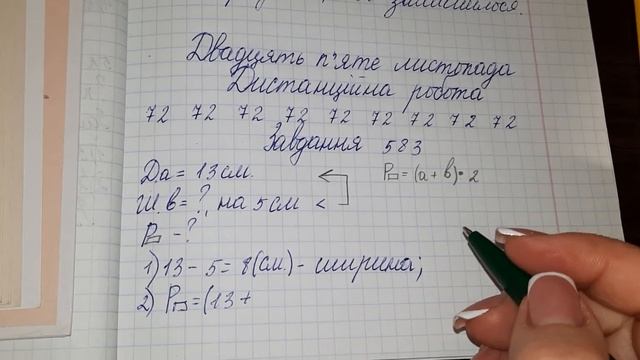 залишилося.
Двадцять п'яте листопада
Дистанційна робота
72 72 72 72 72 72 72 72 72
Завдання 583
Д. a = 13 см.
P▭ = (a + b) • 2
Ш. b = ?, на 5 см <
P▭ - ?
1) 13 - 5 = 8 (см.) - ширина;
2) P▭ = (13 +